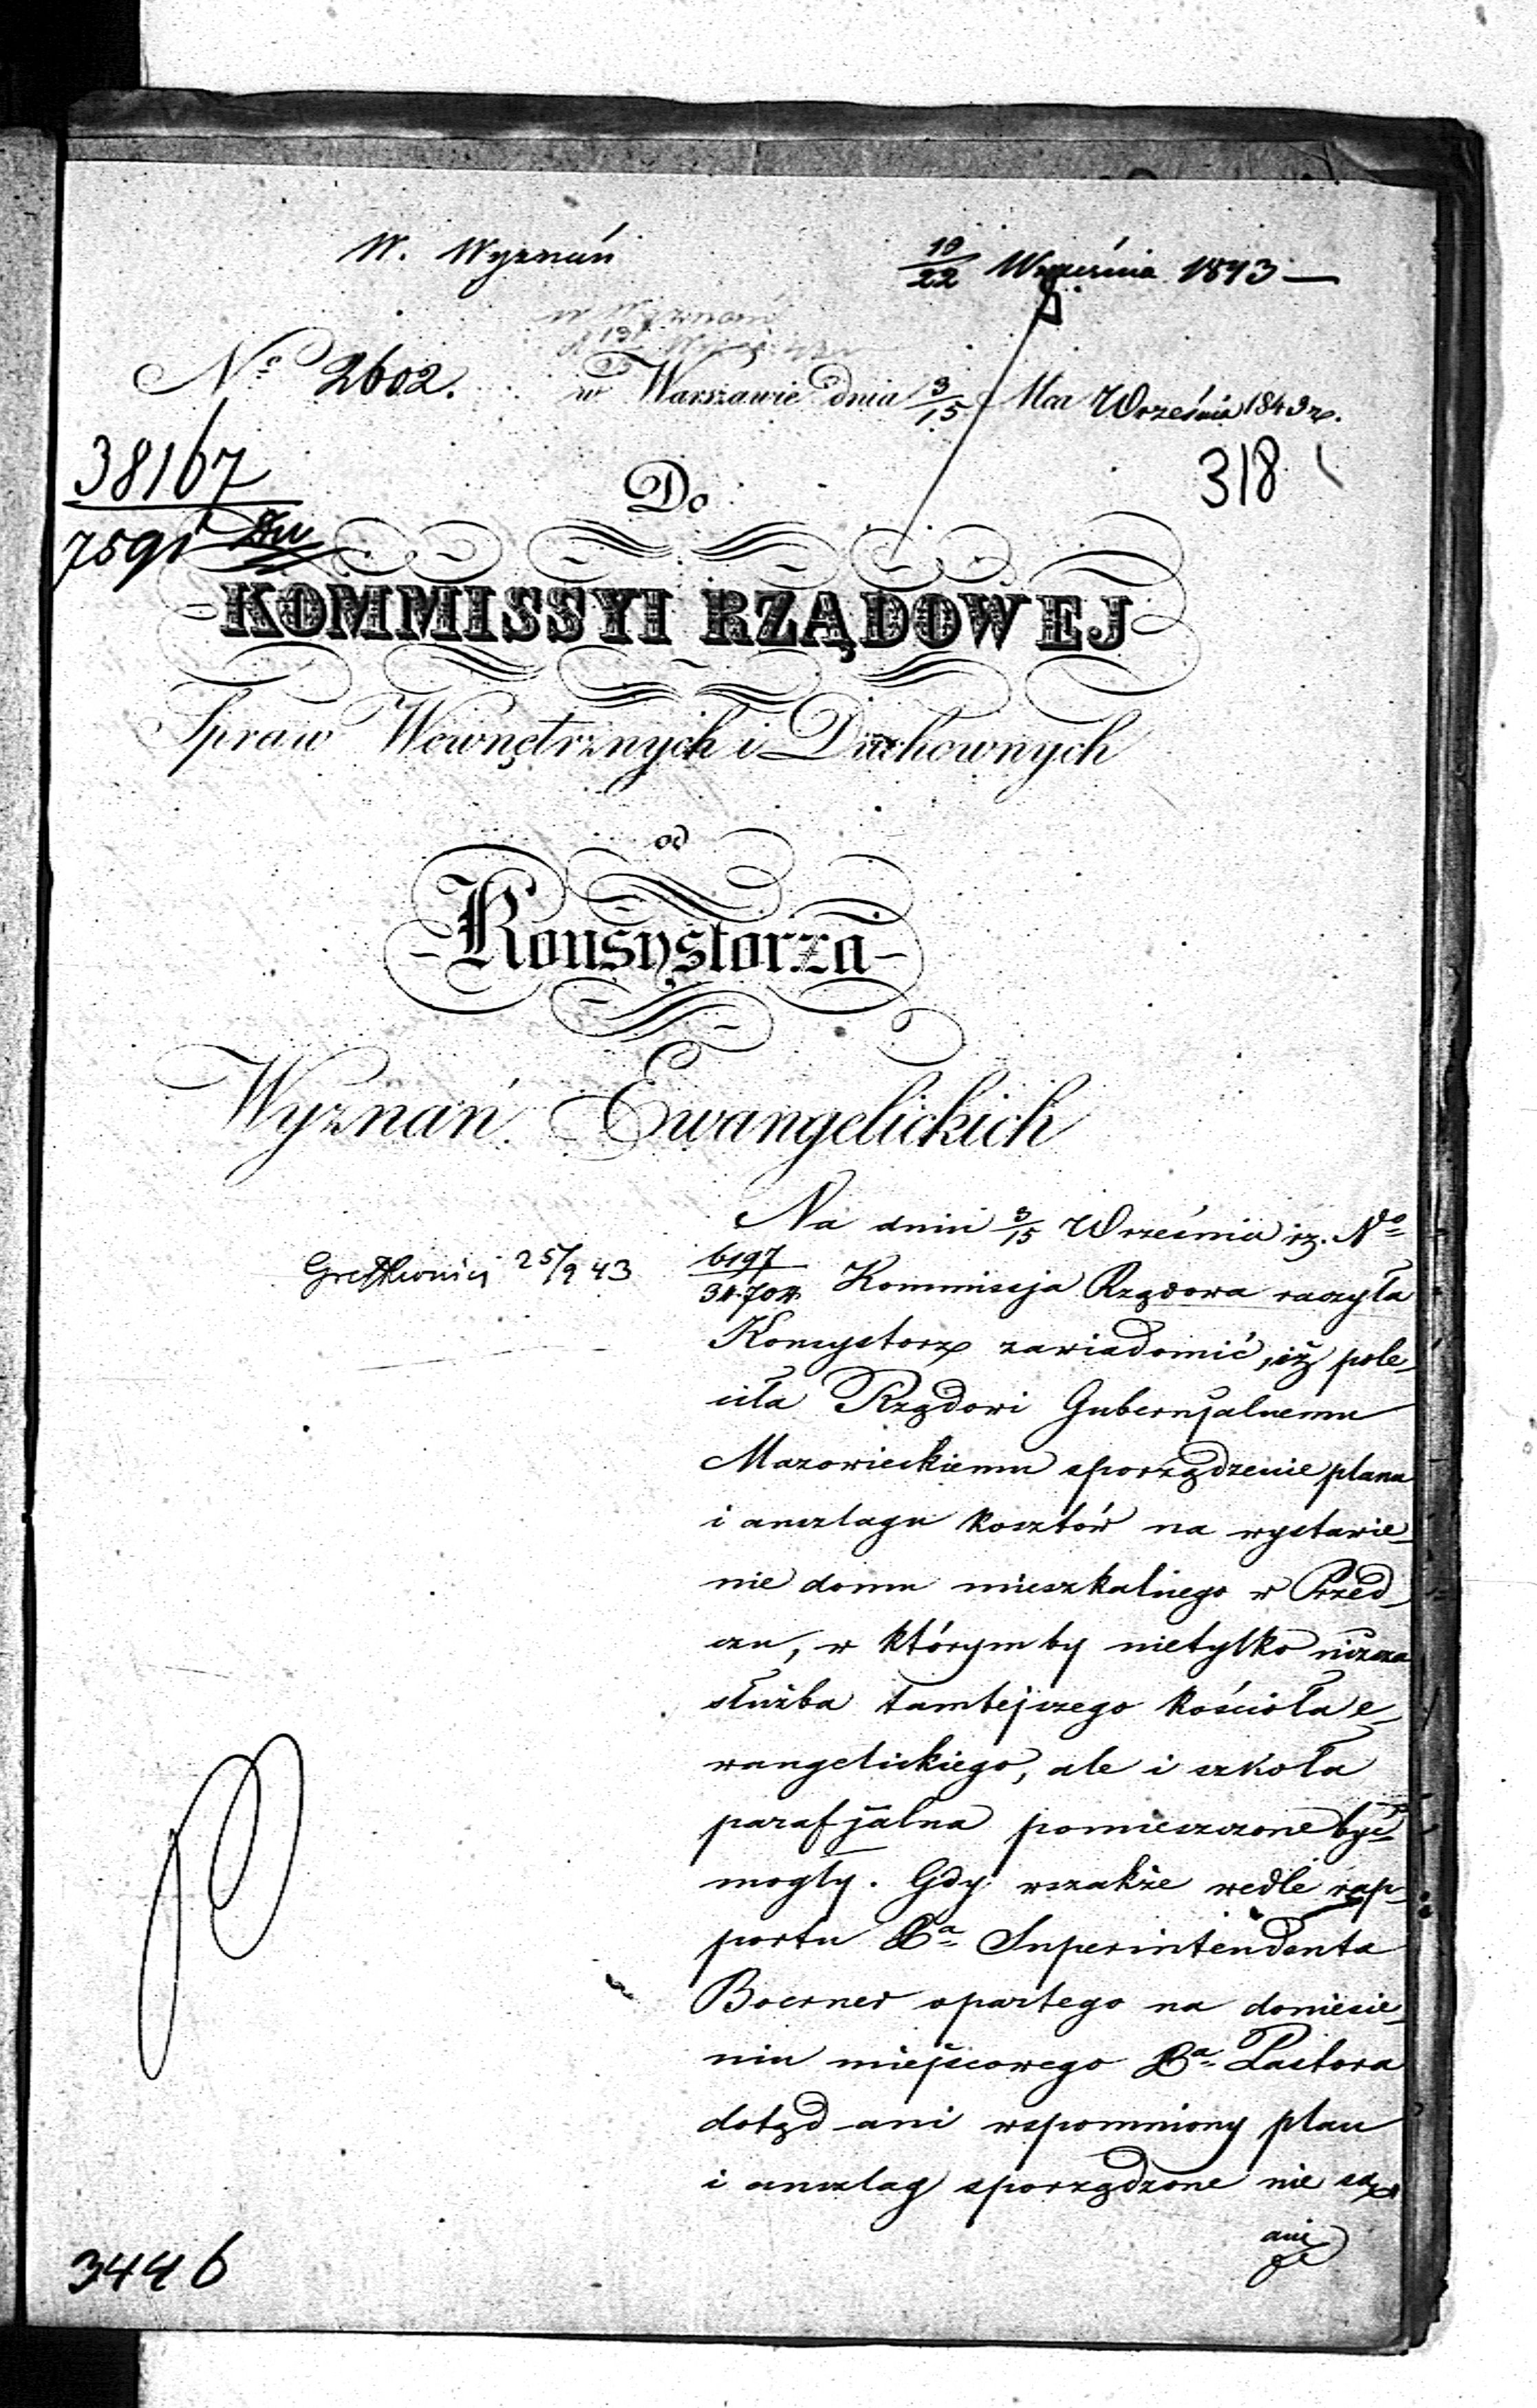 W. Wyznań
10/22 Września 1843 —
w Wyznań
Nº 2602. w Warszawie dnia 3/15 Mca Września 1843 r.
318
38167
7591
Do
KOMMISSYI RZĄDOWEJ
Spraw Wewnętrznych i Duchownych
od
Konsystorza
Wyznań Ewangelickich
Na dniu 3/15 Września rz. Nº
25/9 43
6197
34.704 Kommissja Rządowa raczyła
Konsystorz zawiadomić, iż pole-
ciła Rządowi Gubernjalnemu
Mazowieckiemu sporządzenie planu
i anszlagu kosztów na wystawie-
nie domu mieszkalnego w Przed-
czu, w którymby nietylko niższa
służba tamtejszego kościoła e-
wangelickiego, ale i szkoła
parafjalna pomieszczone być
mogły. Gdy wszakże wedle rap-
portu Xa Superintendenta
Boerner opartego na doniesie-
niu miejscowego Xa Pastora
dotąd ani wspomniony plan
i anszlag sporządzone nie są,
ani
3446